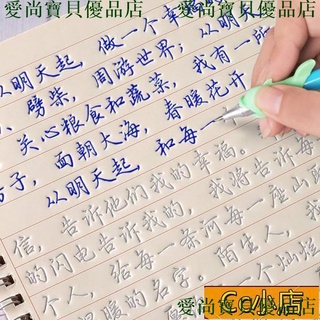 愛尚寶貝優品店 愛尚寶貝優品店
从明天起,做一个幸
劈柴,周游世界;从明天
关心粮食和蔬菜,我有一所
房子,面朝大海,春暖花开
从明天起 和每一
信,告诉他们我的幸福。
的闪电告诉我的,我将告诉每
个人,给每一条河每一座山
温暖的名字。陌生人,我
一个灿烂
愛尚寶貝優品店 Co小店